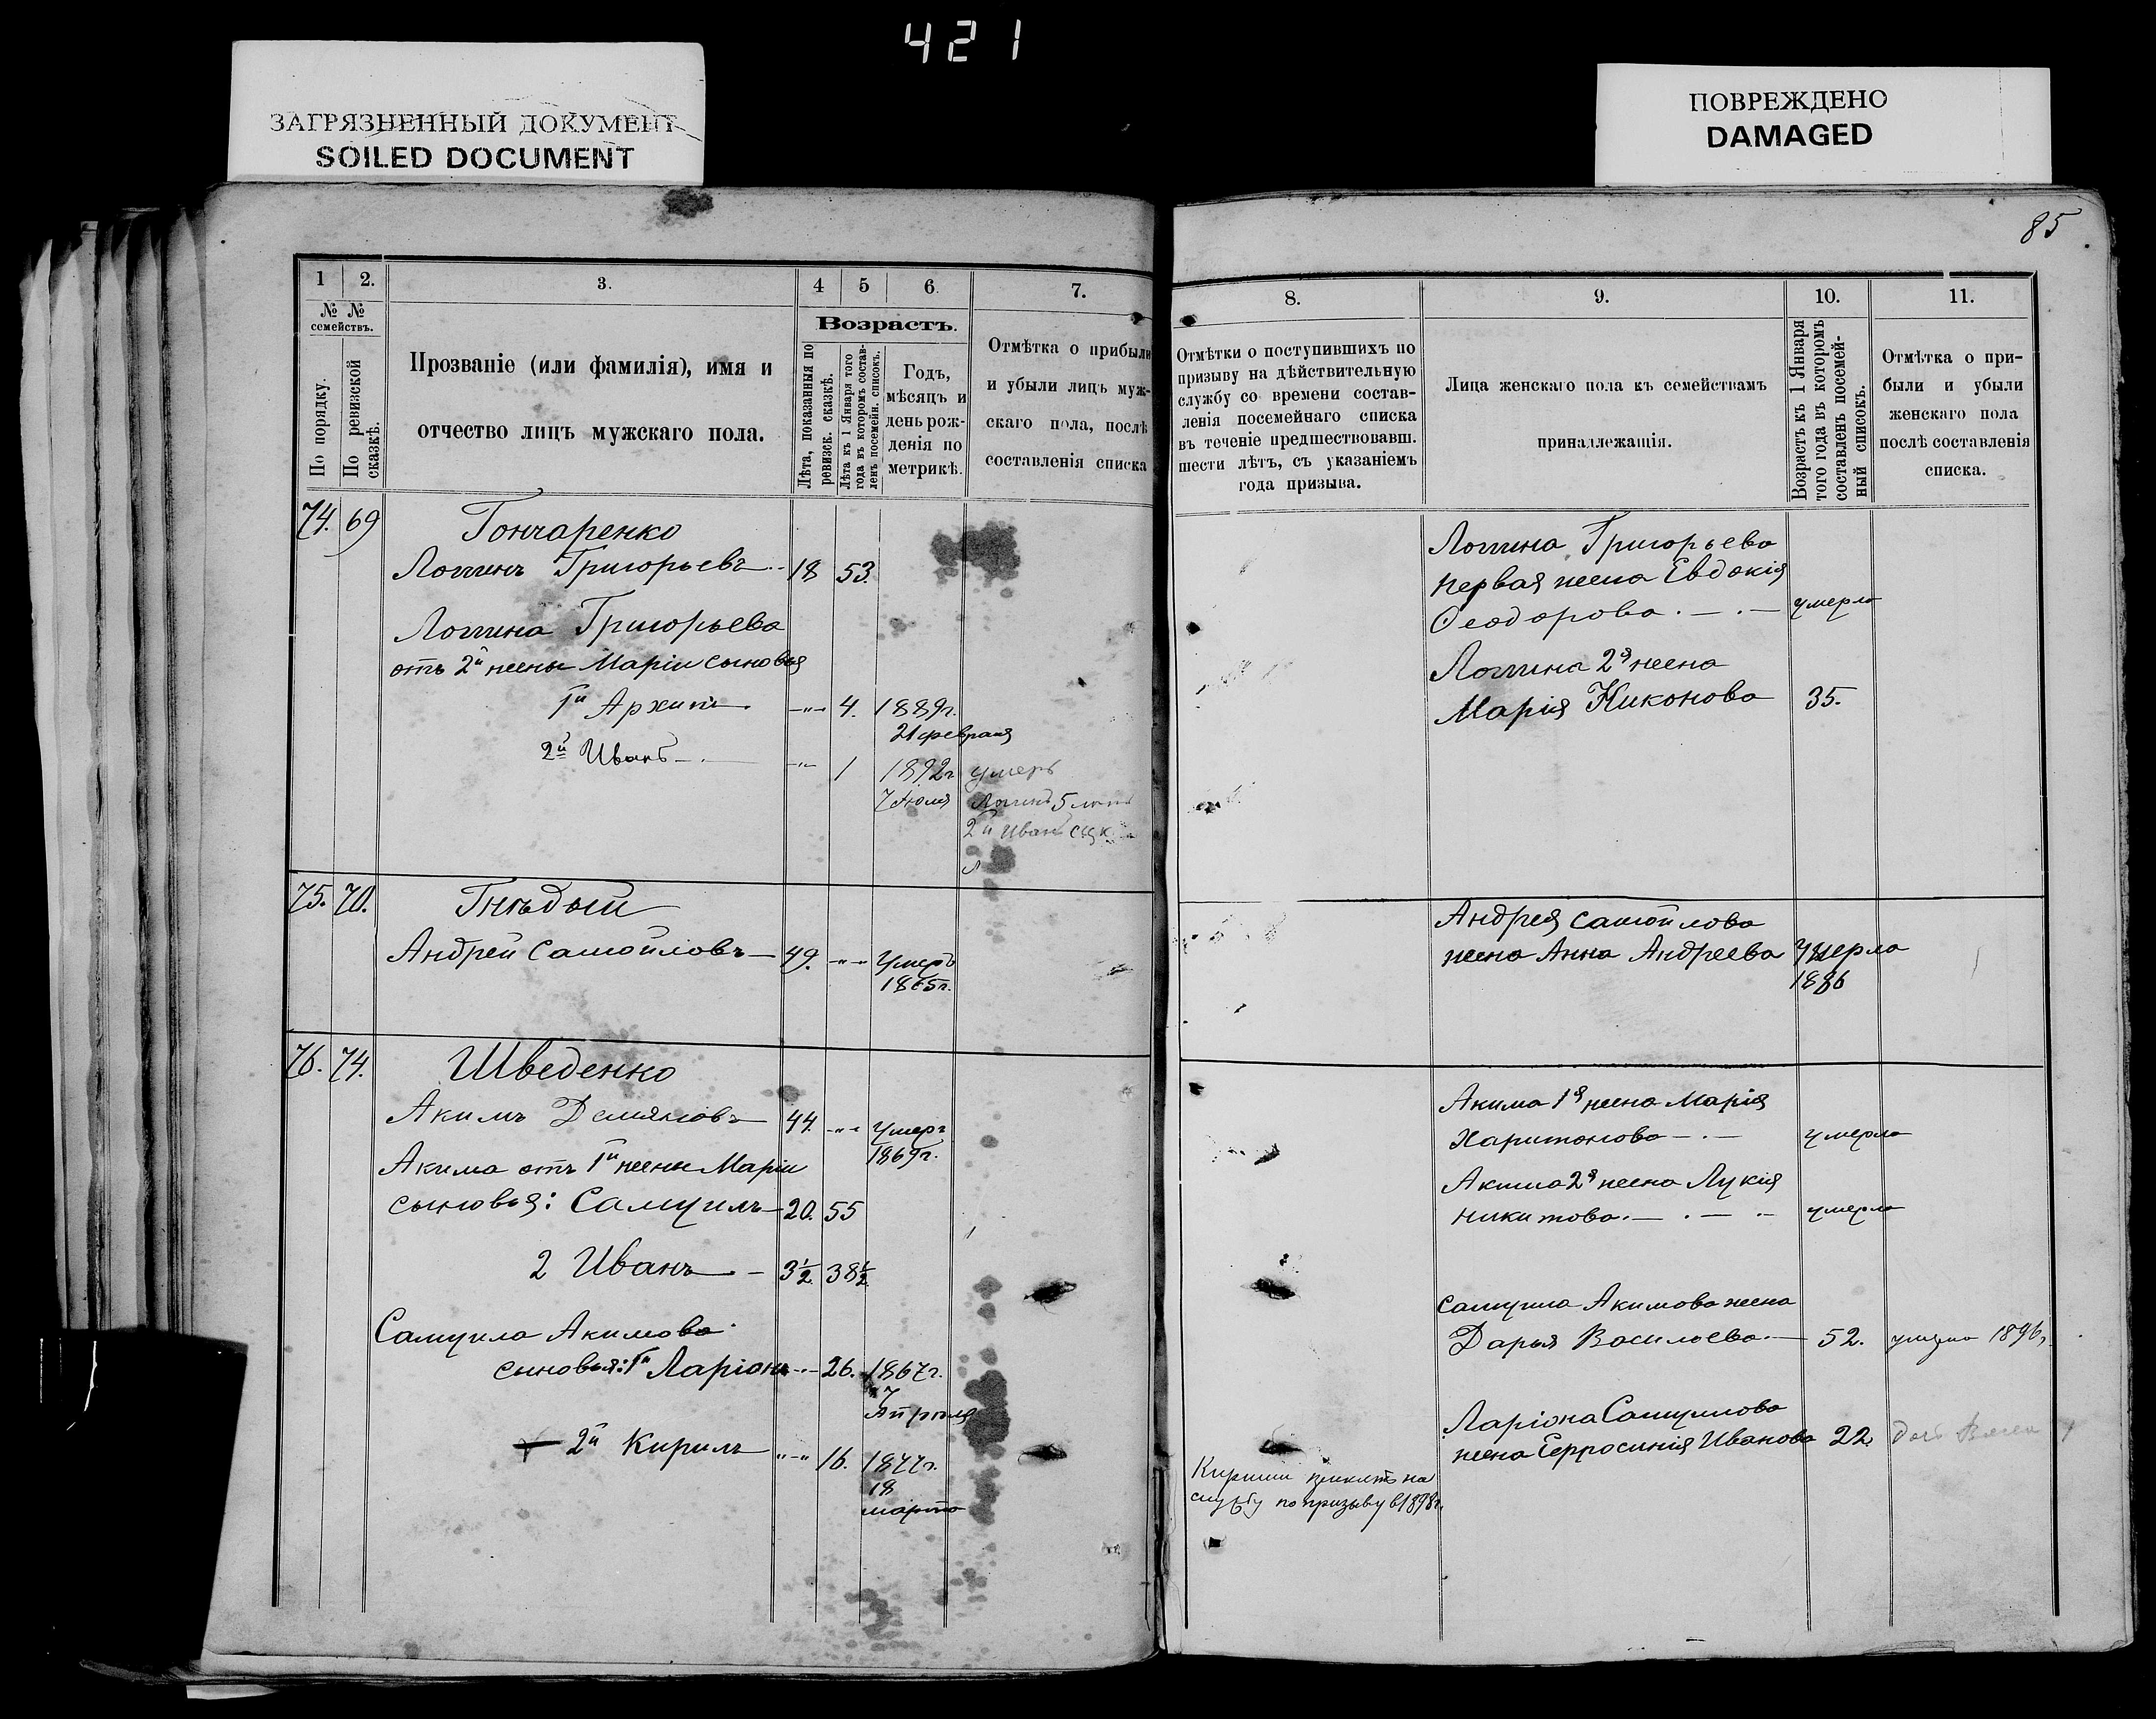 421
ЗАГРЯЗНЕННЫЙ ДОКУМЕНТ
SOILED DOCUMENT
ПОВРЕЖДЕНО
DAMAGED
85
1 2. 3. 4 5 6 7.
№ № семействъ.
По порядку.
По ревизской сказкѣ.
Прозваніе (или фамилія), имя и
отчество лицъ мужскаго пола.
Возрастъ.
Лѣта, показанныя по ревизск. сказкѣ.
Лѣта къ 1 Января того года въ которомъ составленъ посемейн. списокъ.
Годъ,
мѣсяцъ и
день рож-
денія по
метрикѣ.
Отмѣтка о прибыли
и убыли лицъ муж-
скаго пола, послѣ
составленія списка
74. 69 Гончаренко
Логгинъ Григорьевъ 18 53.
Логгина Григорьева
отъ 2й жены Маріи сыновья
1й Архипъ -"- 4. 1889г.
21 февраля
2й Иванъ -"- 1 1892г умеръ
7 Июля
2й Иванъ
75. 70. Гнѣдый
Андрей Самойловъ 49. -"- Умеръ
1865г.
76. 74. Шведенко
Акимъ Демяновъ 44. -"- Умеръ
1869г.
Акима отъ 1й жены Маріи
сыновья: Самуилъ 20. 55
2 Иванъ 3½ 38½
Самуила Акимова
сыновья: 1й Ларіонъ -"- 26. 1867г.
7
Апреля
2й Кирилъ "-" 16. 1877г.
18
марта
8. 9. 10. 11.
Отмѣтки о поступившихъ по
призыву на дѣйствительную
службу со времени состав-
ленія посемейнаго списка
въ теченіе предшествовавш.
шести лѣтъ, съ указаніемъ
года призыва.
Лица женскаго пола къ семействамъ
принадлежащія.
Возрастъ къ 1 Января
того года въ которомъ
составленъ посемей-
ный списокъ.
Отмѣтка о при-
были и убыли
женскаго пола
послѣ составленія
списка.
Логгина Григорьева
первая жена Евдокія
Ѳеодорова умерла
Логгина 2я жена
Марія Никонова 35.
Андрея Самойлова
жена Анна Андреева Умерла
1886
Акима 1я жена Марія
Харитонова умерла
Акима 2я жена Лукія
Никитова умерла
Самуила Акимова жена
Дарья Василоева 52. умерла 1896г.
Ларіона Самуилова
жена Ефросинія Иванова 22.
Кирилл принятъ на
службу по призыву в 1898г.